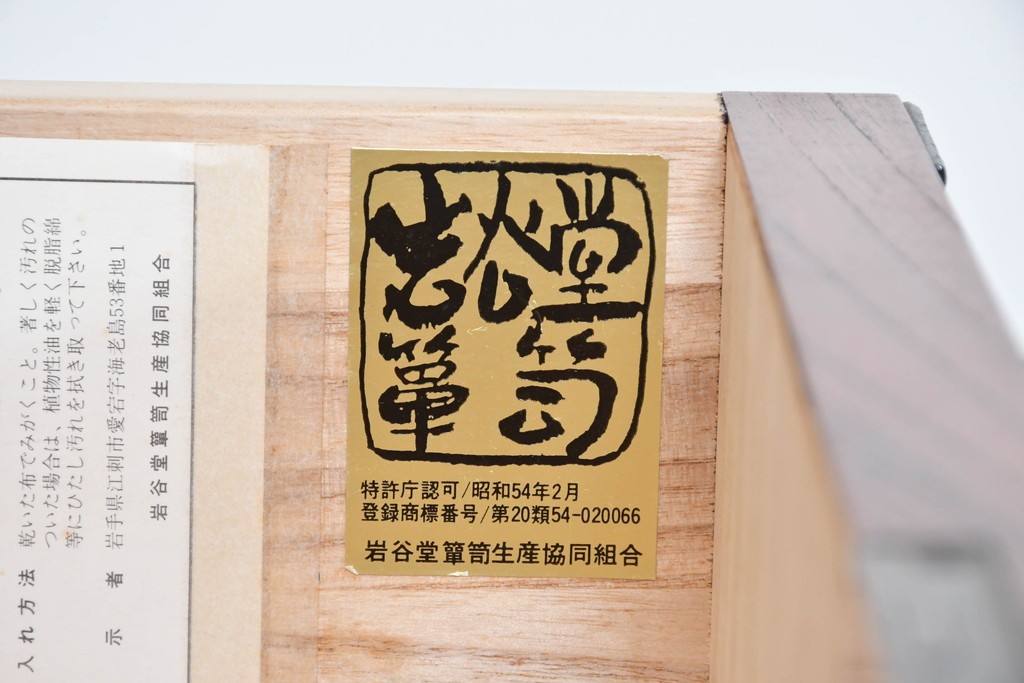 岩谷堂
簞笥
特許庁認可/昭和54年2月
登録商標番号/第20類54-020066
岩谷堂簞笥生産協同組合
入れ方法 乾いた布でみがくこと。著しく汚れの
ついた場合は、植物性油を軽く脱脂綿
等にひたし汚れを拭き取って下さい。
示者 岩手県江刺市愛宕字海老島53番地1
岩谷堂簞笥生産協同組合